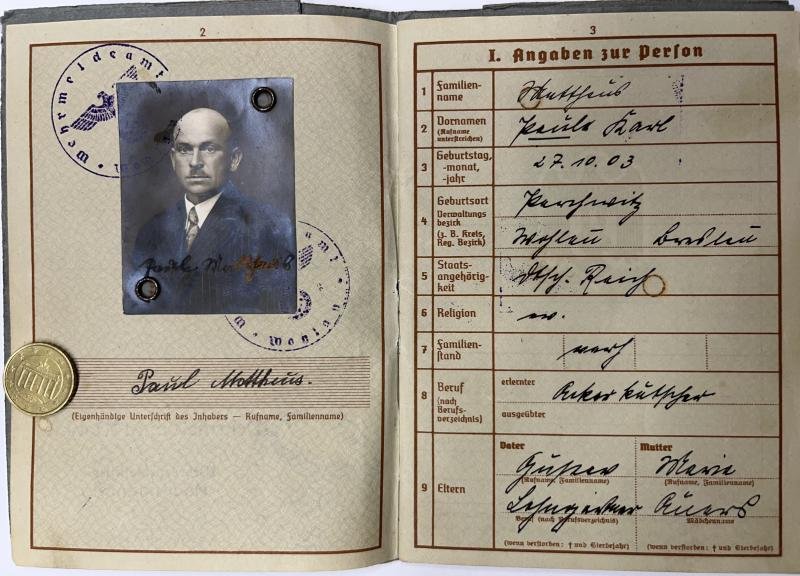 2
Wehrmeldeamt
Wohlau
Paul Mattheus
Wehrmeldeamt
Wohlau
Paul Mattheus.
(Eigenhändige Unterschrift des Inhabers — Rufname, Familienname)
3
I. Angaben zur Person
1 Familien-
name
Mattheus
2 Vornamen
(Rufname
unterstreichen)
Paul Karl
3 Geburtstag,
-monat,
-jahr
27.10.03
4 Geburtsort
Verwaltungs
bezirk
(z. B. Kreis,
Reg. Bezirk)
Wohlau Breslau
5 Staats-
angehörig-
keit
dtsch. Reich
6 Religion
ev.
7 Familien-
stand
verh
8 Beruf
(nach
Berufs-
verzeichnis)
erlernter
Ackerkutscher
ausgeübter
9 Eltern
Vater
Gustav
(Rufname, Familienname)
Beruf (nach Berufsverzeichnis)
(wenn verstorben: † und Sterbejahr)
Mutter
Marie
(Rufname, Familienname)
Mädchenname
(wenn verstorben: † und Sterbejahr)